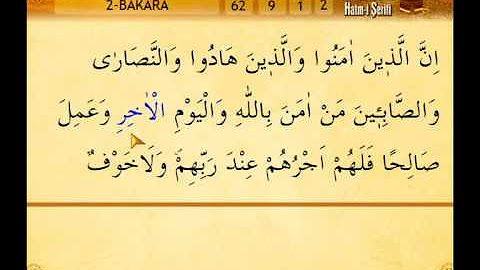 2-BAKARA 62 9 1 2 Hatm-i Şerifi
اِنَّ الَّذ۪ينَ اٰمَنُوا وَالَّذ۪ينَ هَادُوا وَالنَّصَارٰى
وَالصَّابِـ۪ٔينَ مَنْ اٰمَنَ بِاللّٰهِ وَالْيَوْمِ الْاٰخِرِ وَعَمِلَ
صَالِحًا فَلَهُمْ اَجْرُهُمْ عِنْدَ رَبِّهِمْۚ وَلَا خَوْفٌ